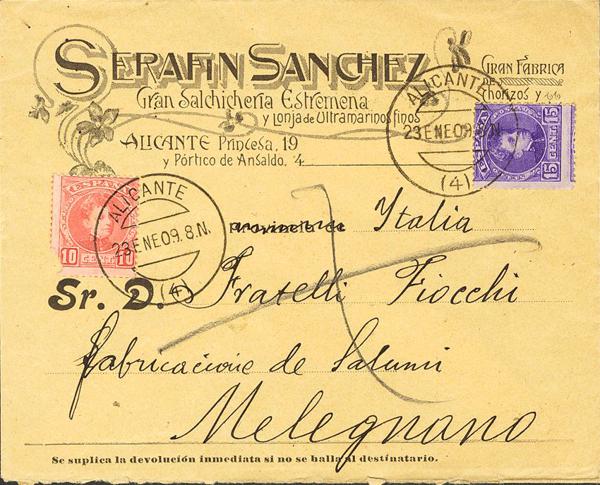 SERAFIN SANCHEZ
GRAN FABRICA
DE
Chorizos y
Gran Salchicheria Estremena
y Lonja de Ultramarinos finos
ALICANTE Princesa, 19
y Pórtico de Ansaldo, 4
ALICANTE
23 ENE 09. 8.N.
(4)
ESPAÑA
15 CENTS 15
ESPAÑA
10 CENTS 10
ALICANTE
23 ENE 09. 8.N.
(4)
provincia de Italia
Sr. D. Fratelli Fiocchi
Fabricacione de Salumi
Melegnano
Se suplica la devolución inmediata si no se halla al destinatario.